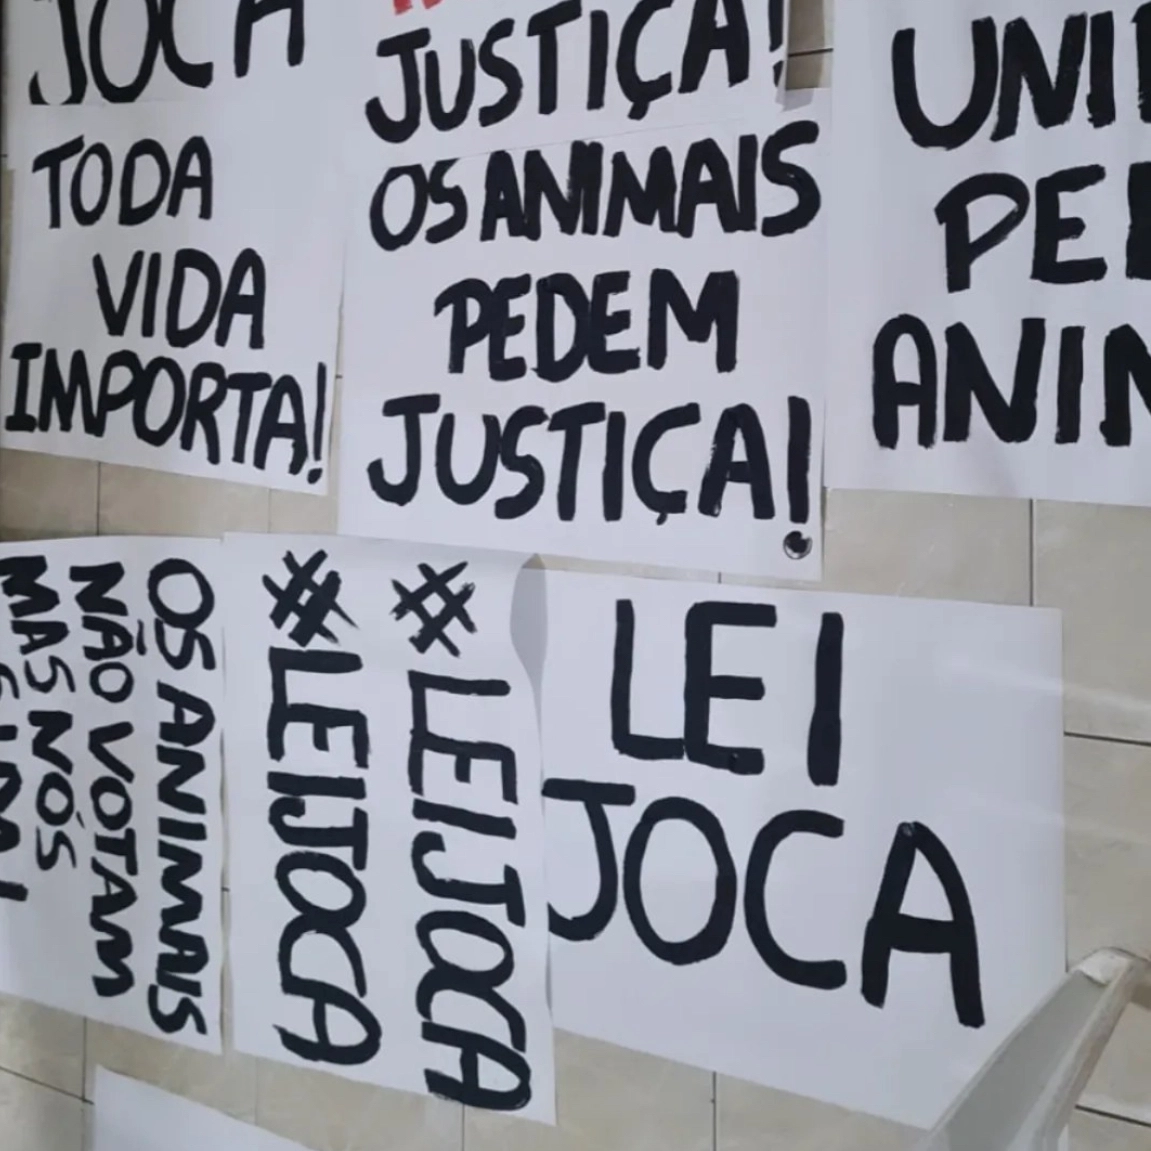 JOCA
TODA
VIDA
IMPORTA!
JUSTIÇA!
OS ANIMAIS
PEDEM
JUSTIÇA!
OS ANIMAIS
NÃO VOTAM
MAS NÓS
#LEIJOCA
#LEIJOCA
LEI
JOCA